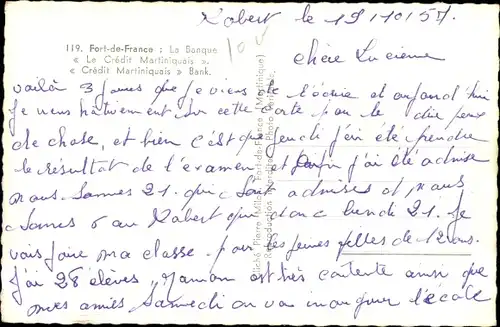 Robert le 19/10/57.
119. Fort-de-France : La Banque
« Le Crédit Martiniquais ».
« Crédit Martiniquais » Bank.
chère Lucienne
voilà 3 jours que je viens de t'écrire et aujourd'hui
je viens hâtivement sur cette carte pour te dire peu
de chose, et bien c'est que jeudi j'ai été prendre
le résultat de l'examen et j'ai été admise
nous sommes 21. qui sont admises et nous
sommes 6 au Robert que donc lundi 21. Je
vais faire ma classe. pour les jeunes filles de 12 ans.
J'ai 28 élèves, maman est très contente ainsi que
mes amies Samedi on va inaugurer l'école
Cliché Pierre Milon Fort-de-France (Martinique)
Reproduction interdite